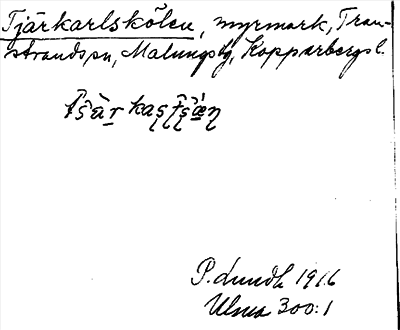 Tjärkarlskölen, myrmark, Tran-
strands sn, Malungs tg, Kopparbergs l.
P. Lundh 1916
Ulma 300:1